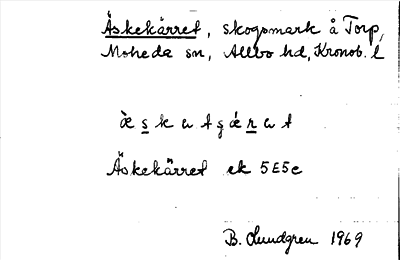 Äskekärret, skogsmark å Torp,
Moheda sn, Allbo hd, Kronob. l
Äskekärret ek 5E5c
B. Lundgren 1969